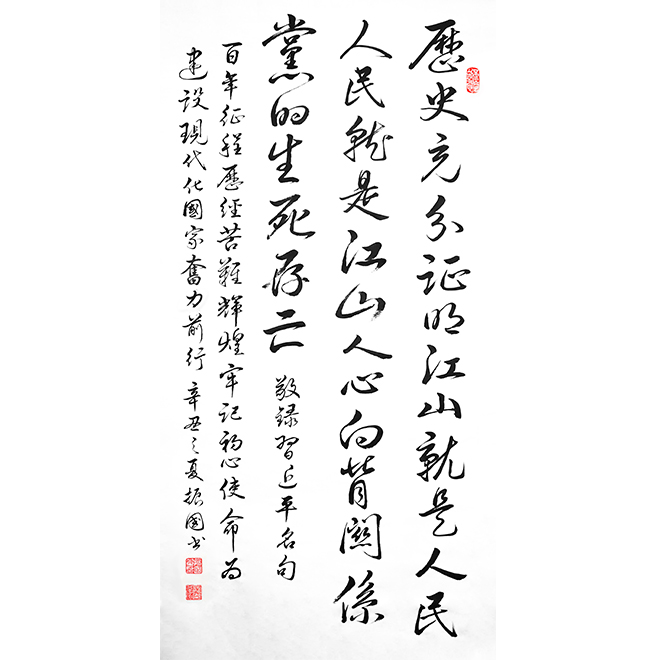 歷史充分证明江山就是人民
人民就是江山人心向背關係
黨的生死存亡 敬録習近平名句
百年征程歷经苦難輝煌牢记初心使命为
建设現代化國家奮力前行 辛丑之夏振國书